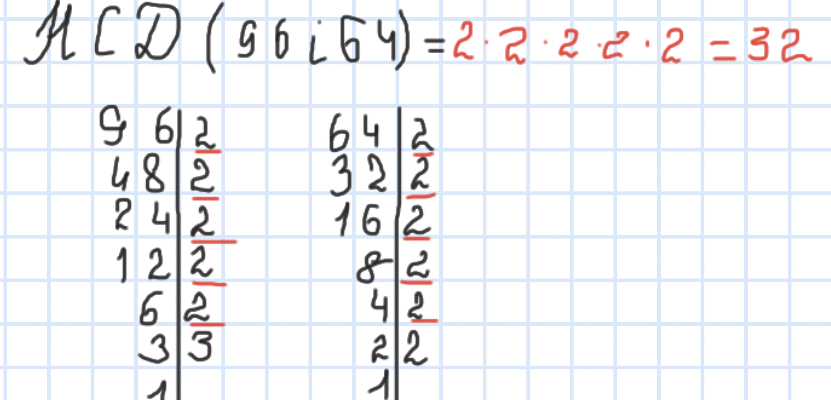 НСД (96 і 64) = 2 · 2 · 2 · 2 · 2 = 32
96 | 2 64 | 2
48 | 2 32 | 2
24 | 2 16 | 2
12 | 2 8 | 2
6 | 2 4 | 2
3 | 3 2 | 2
1 | 1 |